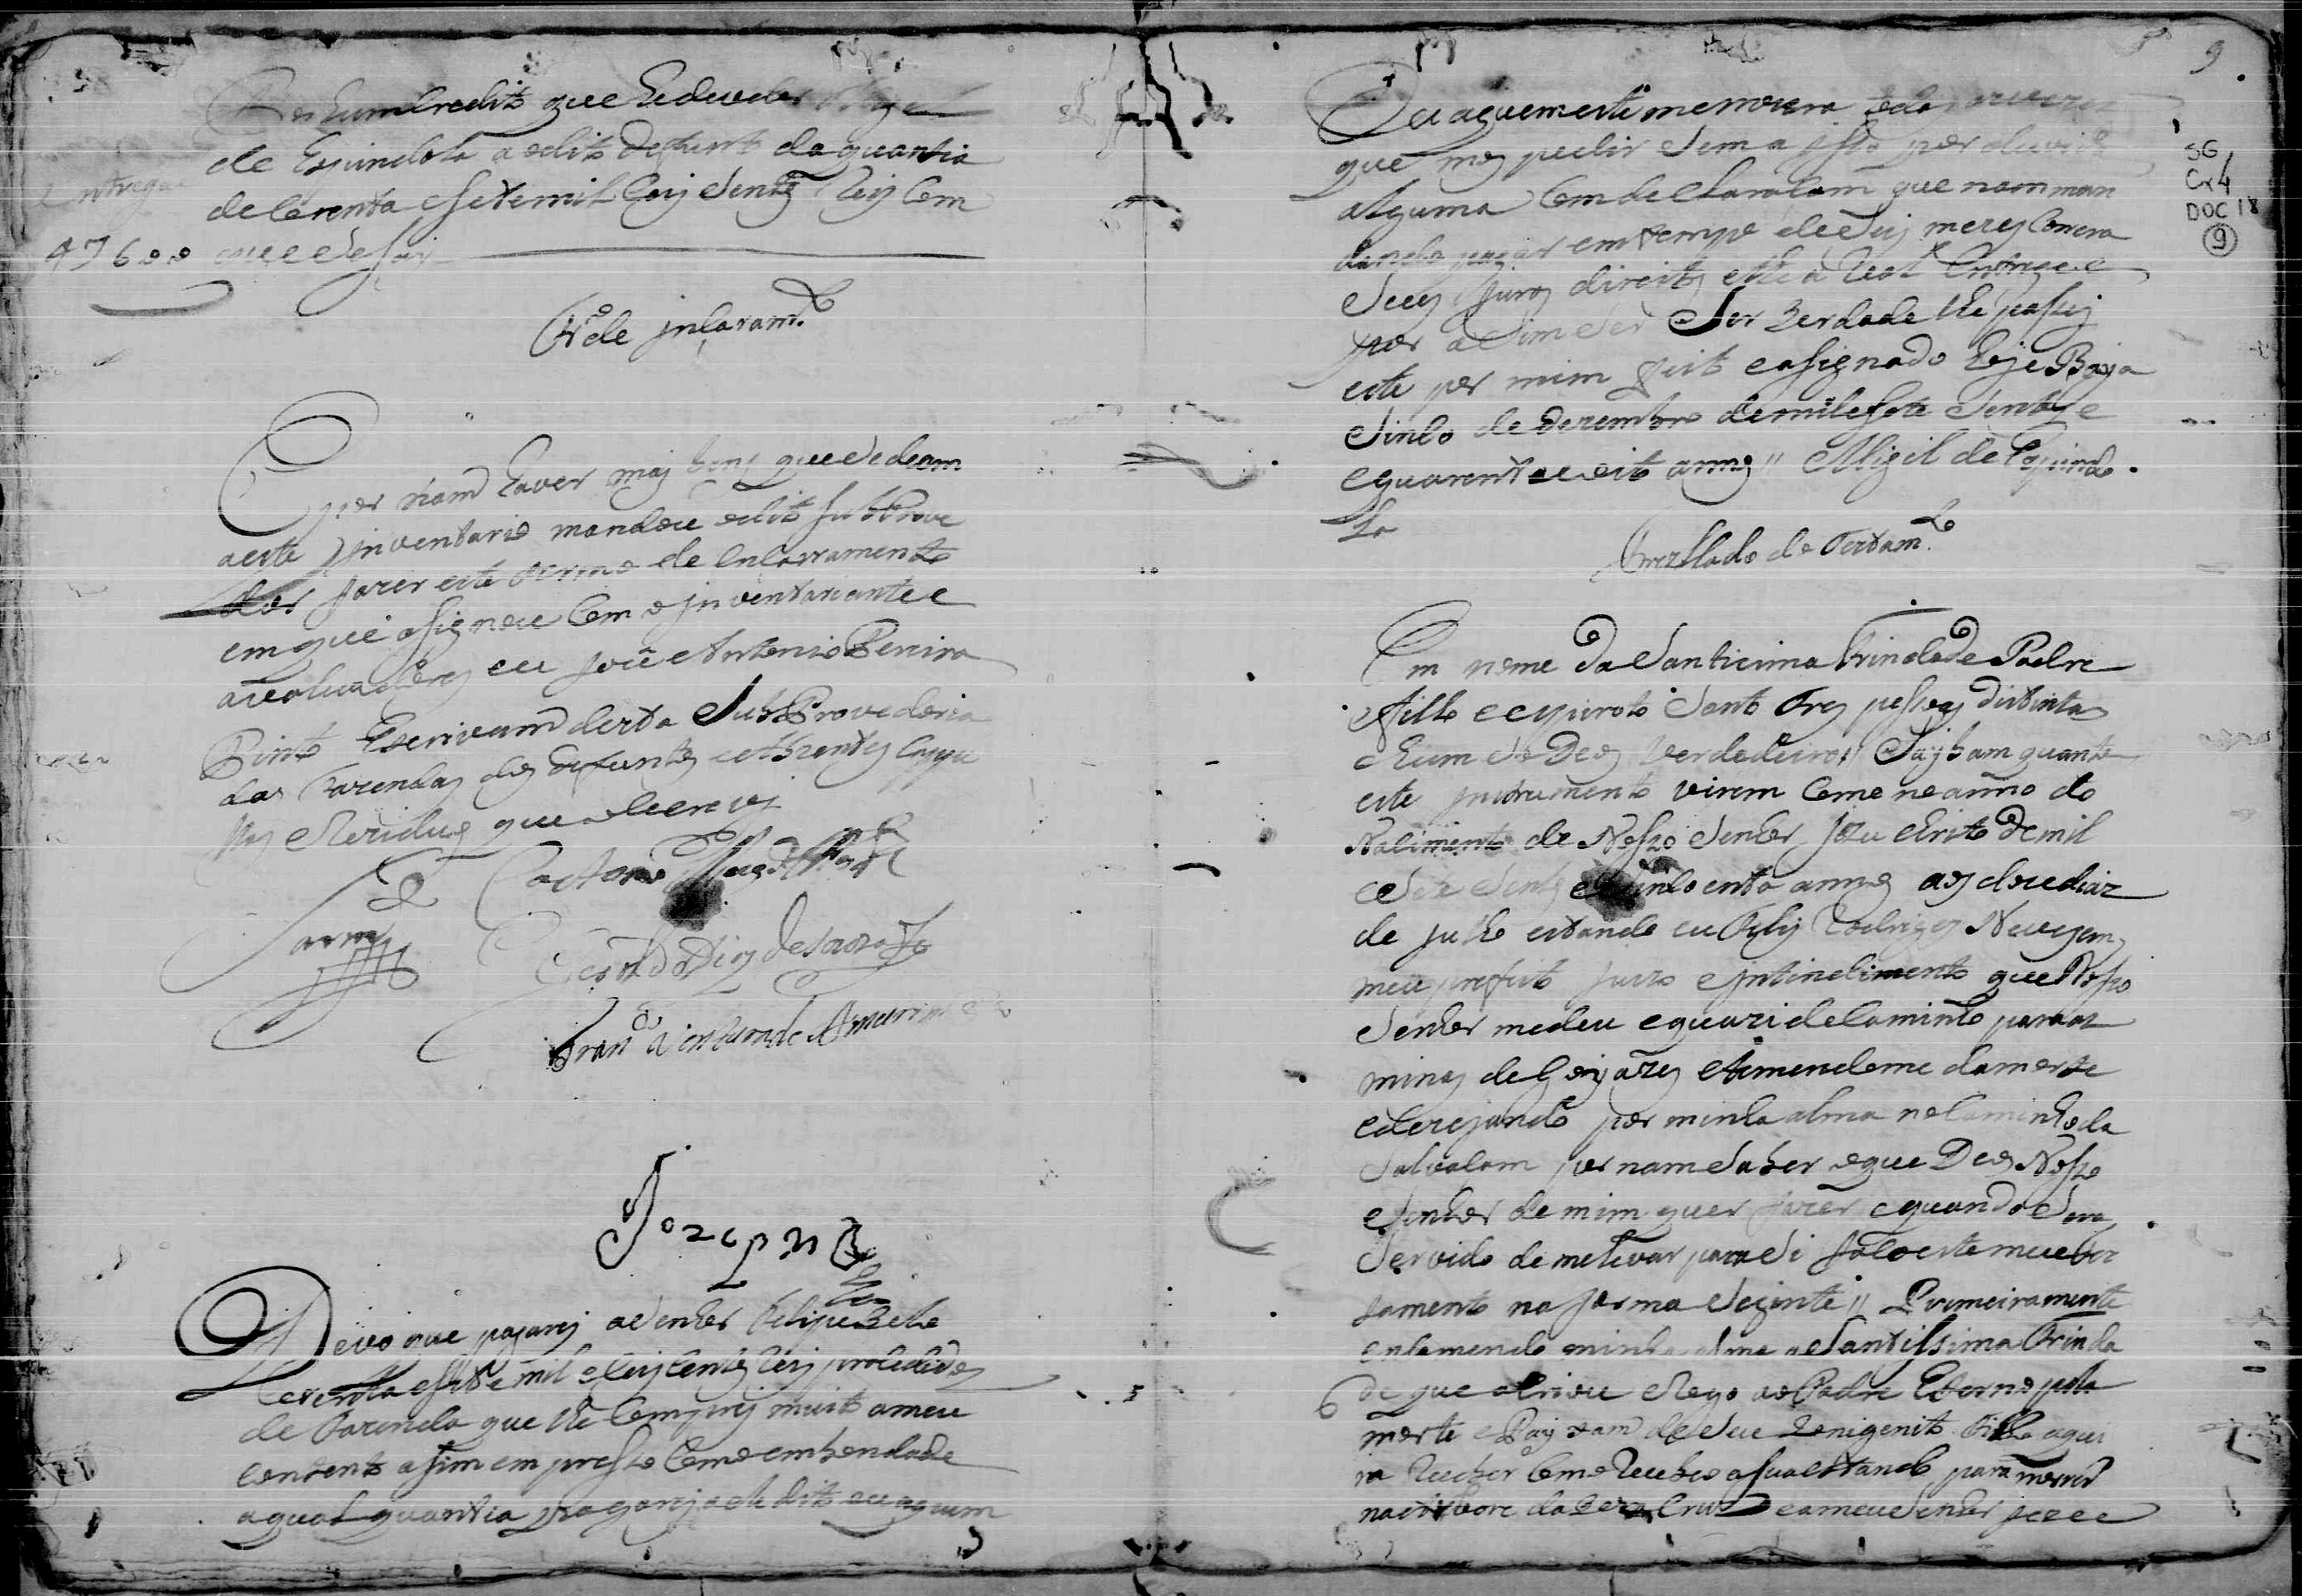 hum Credito que he devedor
de Espindola a o dito defunto da quantia
de corenta e sete mil seis Sentos Reis Com
Entregue
47600 que se sai
To de incaram.to
E por nam haver mais bens que se deam
a este Inventario mandou o dito Sub Prove
dor fazer este termo de Encarramento
em que asignou Com o inventariante e
avaluadores eu Joze Antonio Pereira
Pinto Escrivam desta Sub Provedoria
das Fazendas dos defuntos e abzentes Cappe
llas e Reziduos que o escrevi
Caetano
Geraldo Dias de Souza
Fran.co Ventura de Amurim
Devo que pagarej ao Senhor Felipe
Corenta e sete mil e seis centos reis procedidos
de Fazenda que lhe Comprej muito a meu
contento asim em presso Como em bondade
a qual quantia pagarej a elle dito ou a quem
9
SG
Cx4
DOC 18
9
Ou a quem este me mostrar
que mos pedir Sem a isso por duvida
alguma Com declaracam que nam man
dando pagar em tempo de Seis mezes Correra
Seus Juros direitos athe a Real Entrega e
por asim Ser Ser Verdade lhe passej
este por mim feito e asignado hoje Baya
Sinco de Dezembro de mil e sete Sentos e
e quarenta e oito annos // Migil de Espindo
la
Trezllado do Testam.to
Em nome da Santicima Trindade Padre
Filho e espiroto Santo tres pessoas distintas
e hum So Deos Verdadeiro // Saybam quanto
este instrumento virem Como no anno do
Nacimento de Nosso Senhor Jezu Christo de mil
e Sete Sentos e Sincoenta annos aos doze dias
de Julho estando eu Felis Rodrigues Neves em
meu prefeito Juizo e intindimento que Nosso
Senhor me deu e quazi de Caminho para as
minas de Goyazes e temendome da morte
e dezejando por minha alma no Caminho da
Salvacam por nam Saber o que Deos Nosso
Senhor de mim quer fazer e quando Sera
Servido de me levar para Si faco este meu
tamento na forma Seginte // Primeiramente
encomendo minha alma a Santissima Trinda
de que a Criou e Rogo ao Padre Eterno pela
morte e Payxam de Seu Unigenito Filho a quei
ra Receber Como Recebeo a Sua estando para morrer
na arbore da Vera Cruz e a meu Senhor Jezu